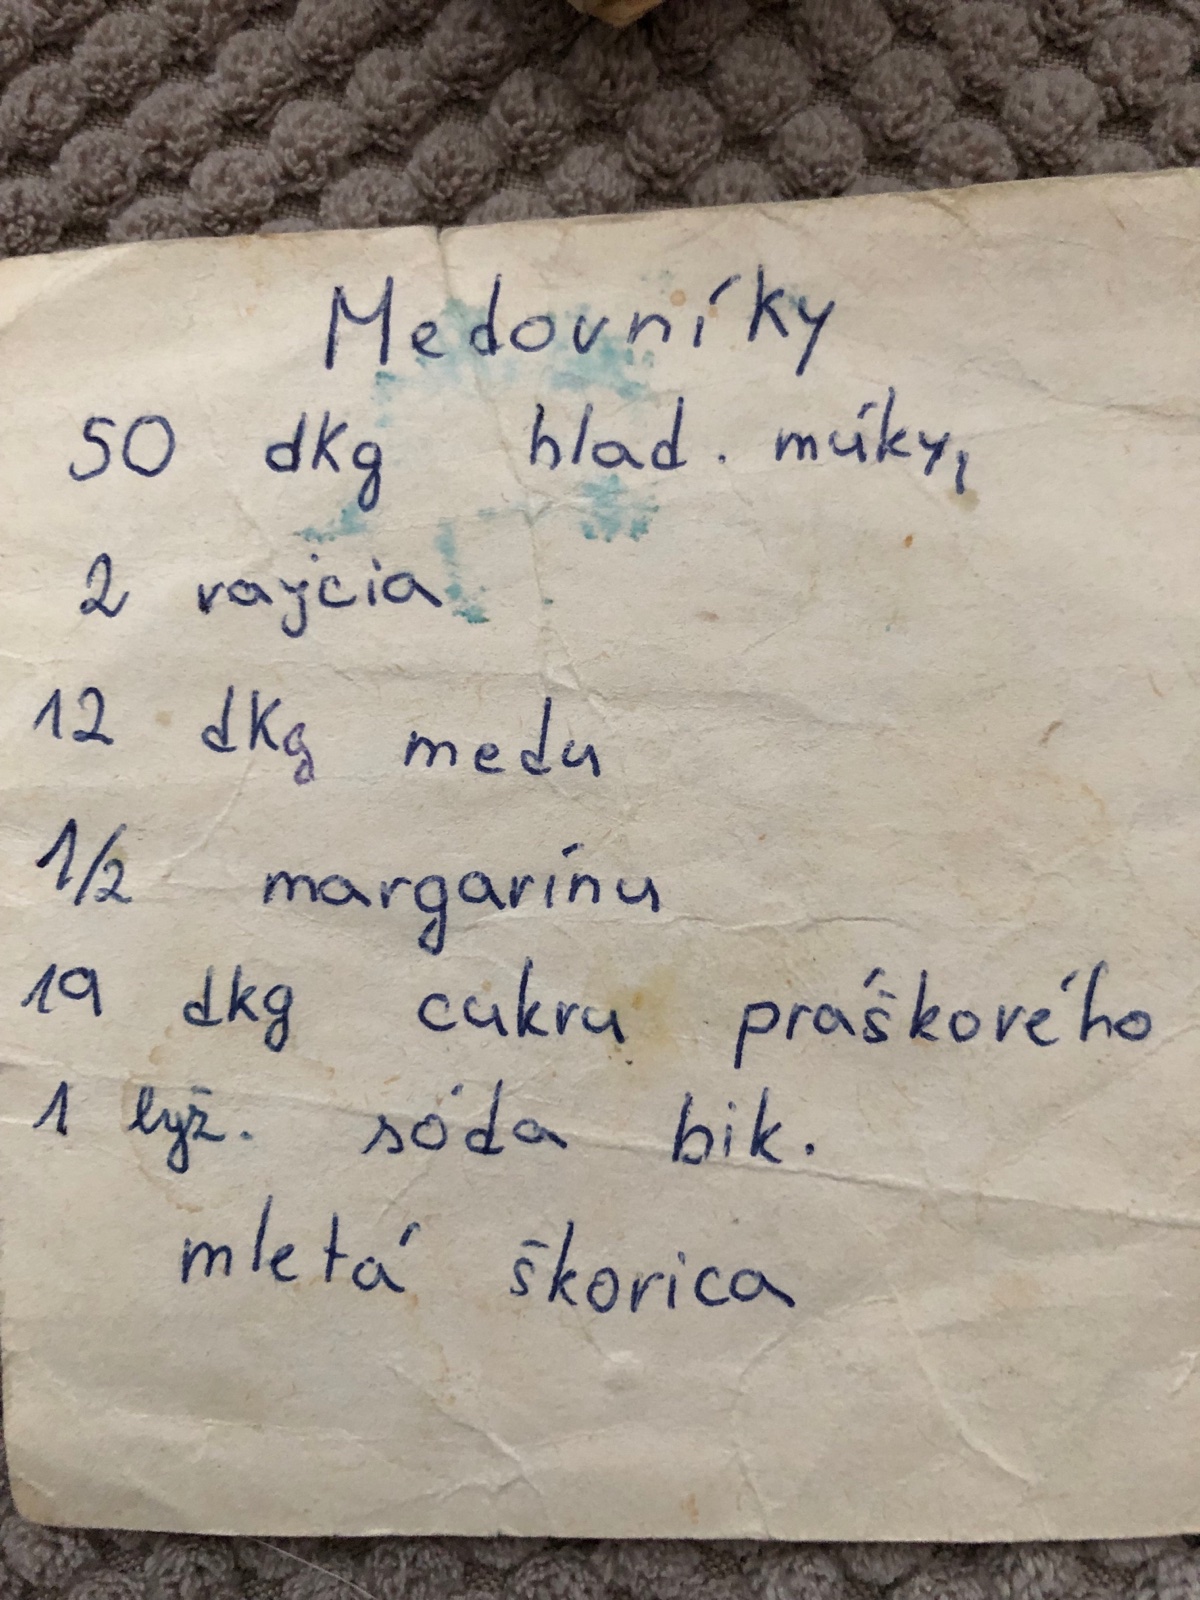 Medovníky
50 dkg hlad. múky,
2 vajcia
12 dkg medu
1/2 margarínu
19 dkg cukru práškového
1 lyž. sóda bik.
mletá škorica